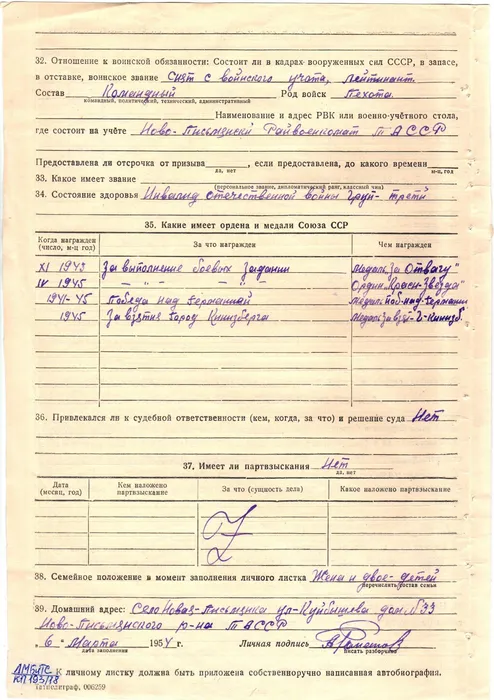 32. Отношение к воинской обязанности: Состоит ли в кадрах вооруженных сил СССР, в запасе,
в отставке, воинское звание Снят с воинского учота, лейтинант.
Состав Командный Род войск Пехота.
командный, политический, технический, административный
Наименование и адрес РВК или военно-учётного стола,
где состоит на учёте Ново-Письменски Райвоенкомат ТАССР
Предоставлена ли отсрочка от призыва , если предоставлена, до какого времени
да, нет м-ц, год
33. Какое имеет звание
(персональное звание, дипломатический ранг, классный чин)
34. Состояние здоровья Инвалид отечественной войны груп-третй
35. Какие имеет ордена и медали Союза ССР
Когда награжден
(число, м-ц год)
За что награжден
Чем награжден
XI 1943 За выполнение боевых задании медаль "За Отвагу"
IV 1945 — " — " — " Орден "Красн-Звезда"
1941-45 Победа над германией медаль поб-над-германии
1945 За взятия город Кинизберга медаль за взя-г-Кинизб.
36. Привлекался ли к судебной ответственности (кем, когда, за что) и решение суда Нет
37. Имеет ли партвзыскания Нет
да, нет
Дата
(месяц, год)
Кем наложено
партвзыскание
За что (сущность дела)
Какое наложено партвзыскание
Z
38. Семейное положение в момент заполнения личного листка Жена и двое-детей
перечислить состав семьи
39. Домашний адрес: Село Новая-Письмянка ул-Куйбышева дом №33
Ново-Письмянского р-на ТАССР
„ 6 " Марта 1954 г. Личная подпись
дата заполнения писать разборчиво
ЛМБиПС
КП 193/18
К личному листку должна быть приложена собственноручно написанная автобиография.
Татполиграф, 006259